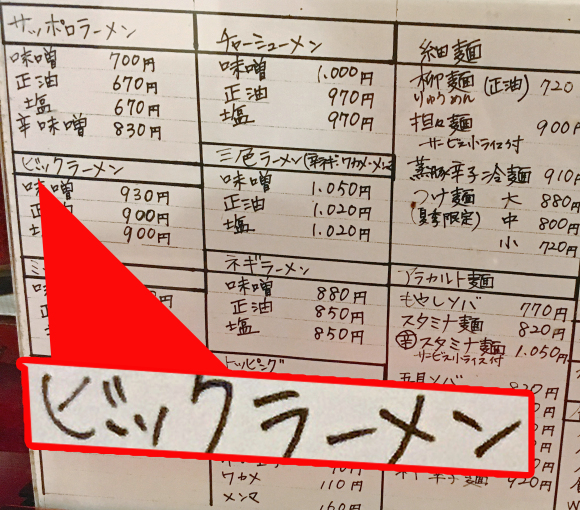 サッポロラーメン
味噌 700円
正油 670円
塩 670円
辛味噌 830円
ビックラーメン
味噌 930円
正 900円
900円
チャーシューメン
味噌 1.000円
正油 970円
塩 970円
三色ラーメン(ネギ・ワカメ・メンマ
味噌 1.050円
正油 1.020円
塩 1.020円
ネギラーメン
味噌 880円
正油 850円
塩 850円
トッピング
ワカメ 110円
メンマ 160円
細麺
柳麺 (正油) 720
りゅうめん
担々麺 900円
サービス小ライス付
蒸豚辛子冷麺 910円
つけ麺 大 880円
(夏季限定) 中 800円
小 720円
アラカルト麺
もやしソバ 770円
スタミナ麺 820円
辛スタミナ麺 1.050円
サービス小ライス付
五目ソバ 920円
920円
ビックラーメン